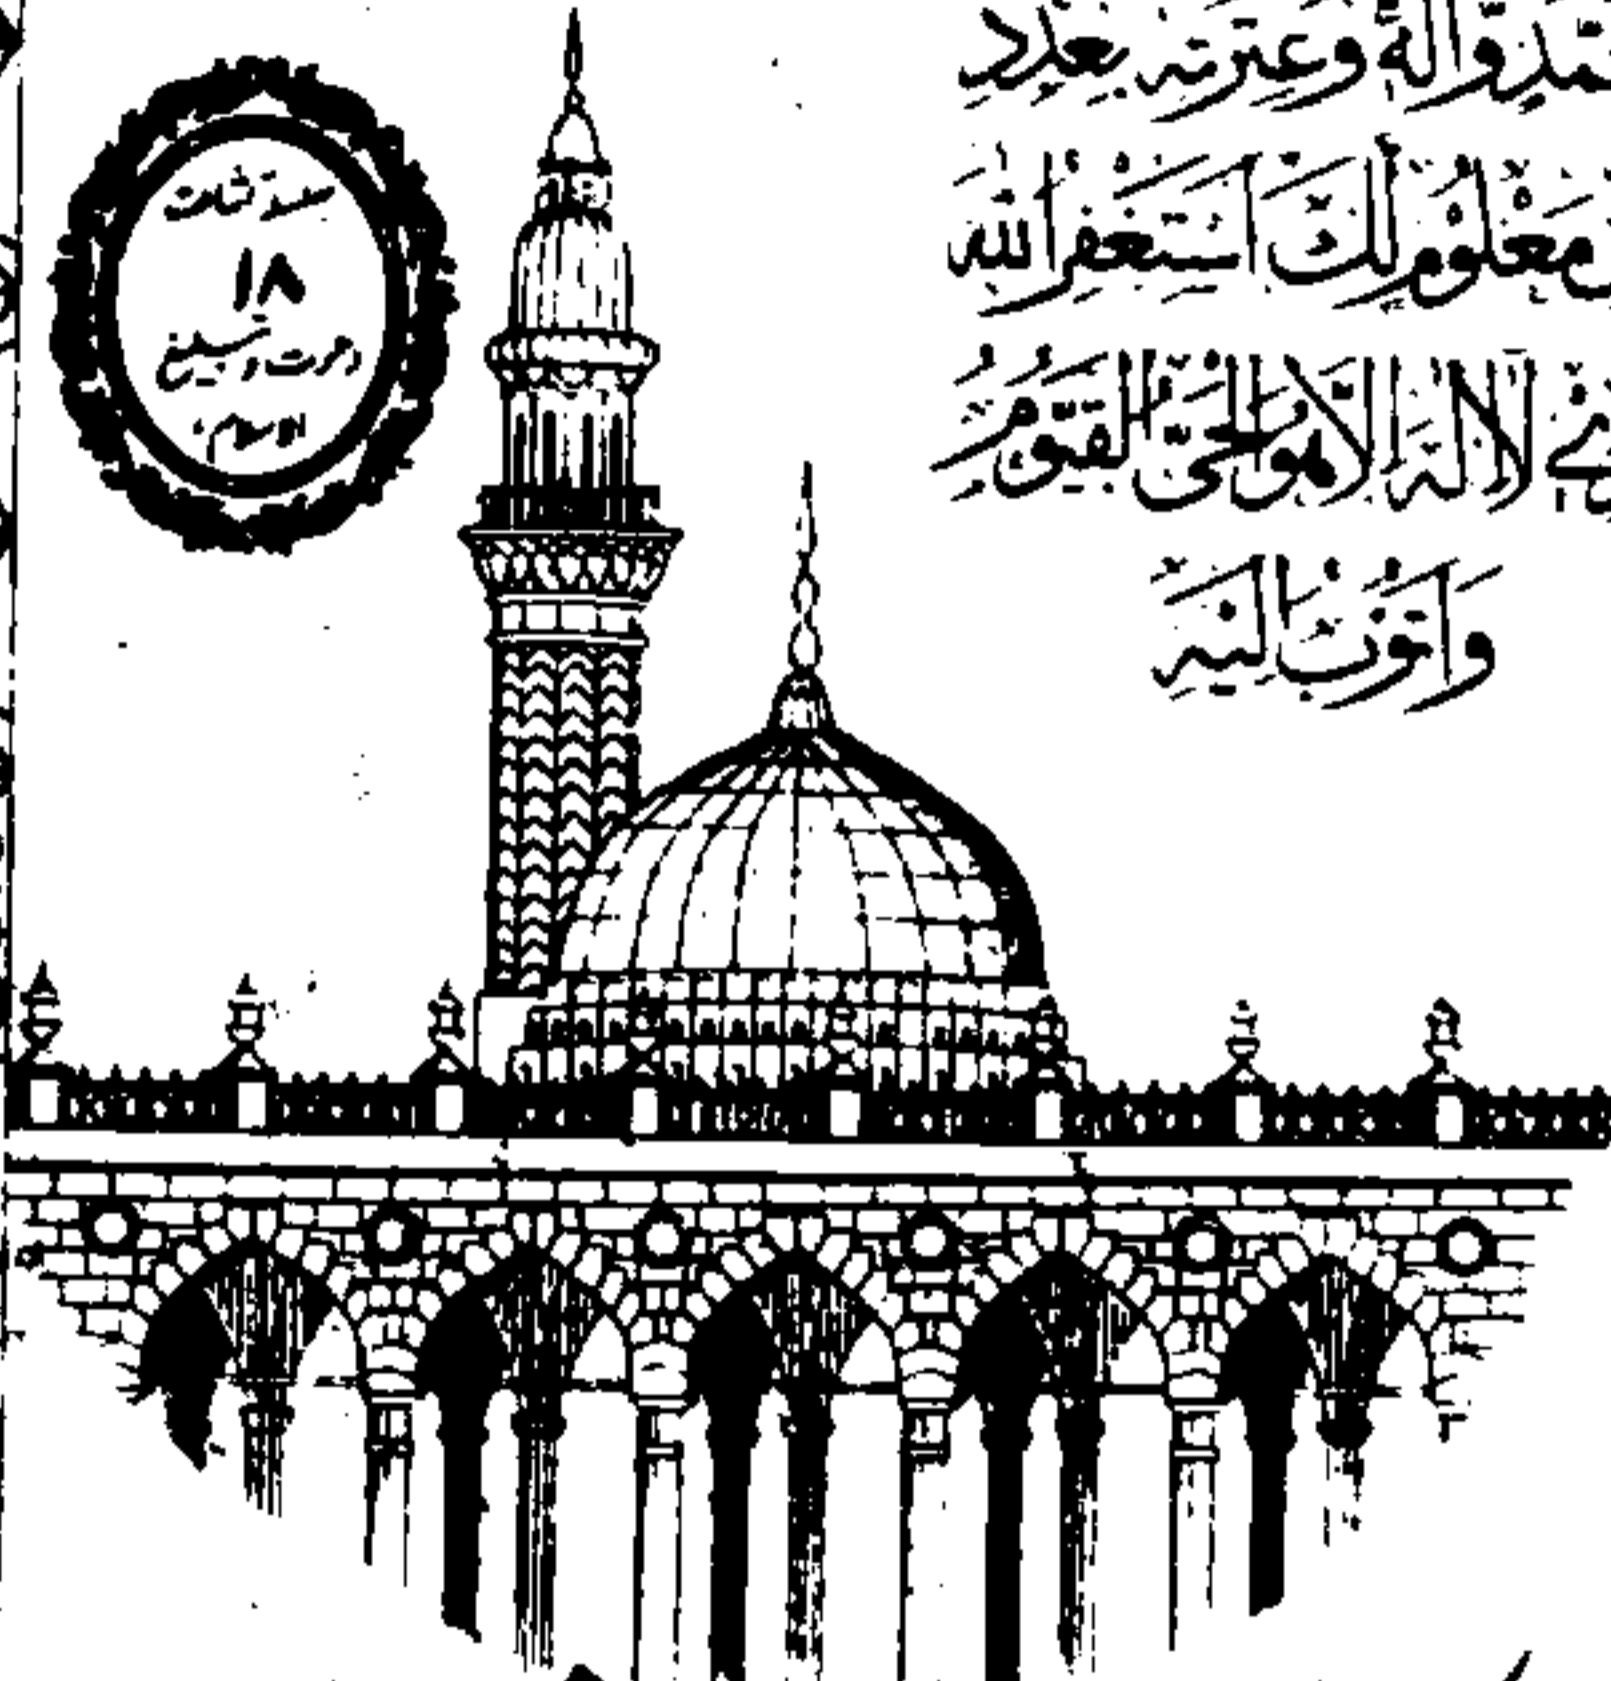 وَآلِهٖ وَعِتْرَتِهٖ بِعَدَدِ
مَعْلُوْمٍ لَّكَ اَسْتَغْفِرُ اللهَ
لَآ اِلٰهَ اِلَّا هُوَ الْحَیُّ الْقَیُّوْمُ
وَاَتُوْبُ اِلَیْهِ
سلسلۂ اشاعت
۱۸
دعوت و تبلیغ
اسلام